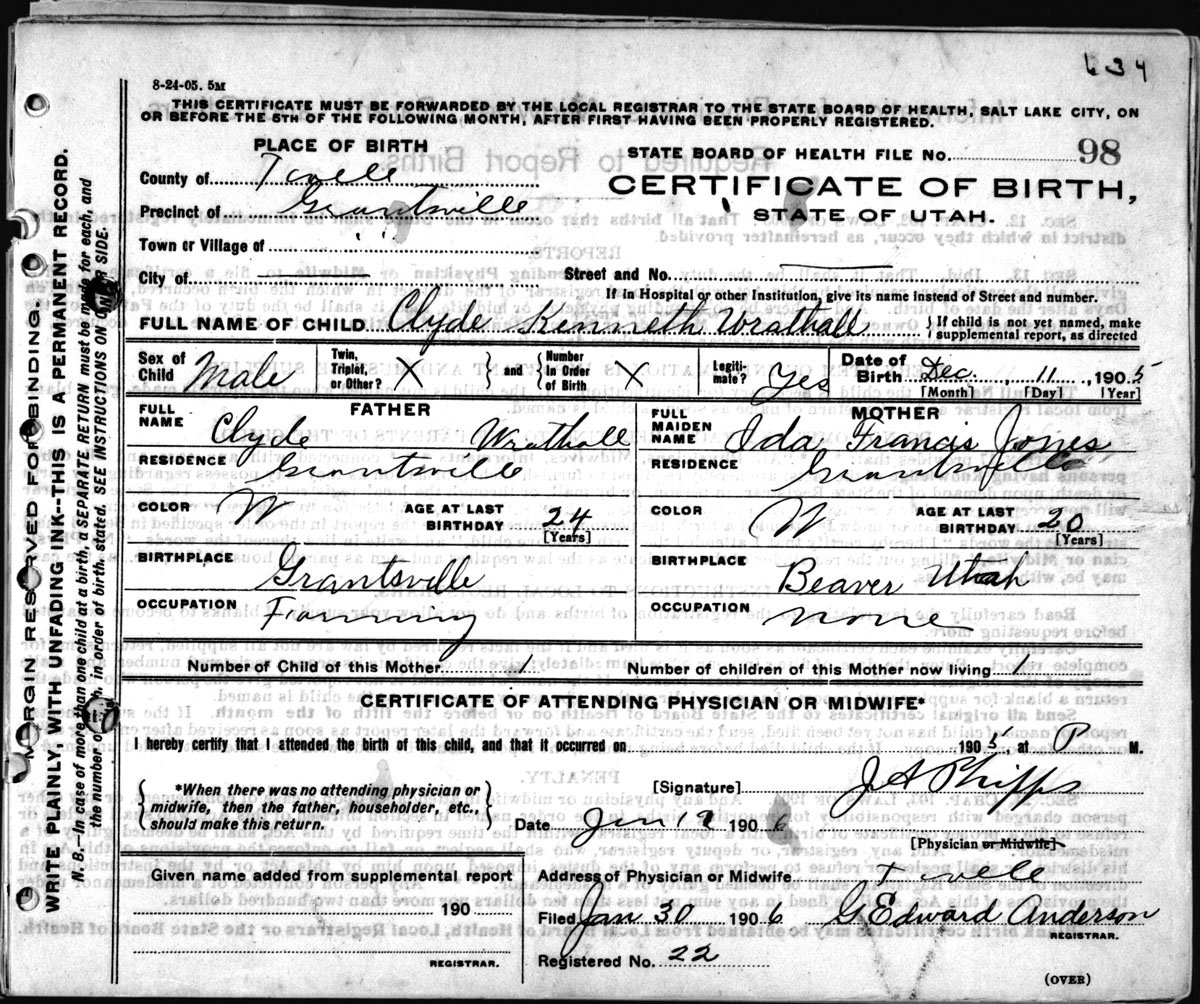 634
8-24-05. 5M
THIS CERTIFICATE MUST BE FORWARDED BY THE LOCAL REGISTRAR TO THE STATE BOARD OF HEALTH, SALT LAKE CITY, ON
OR BEFORE THE 5TH OF THE FOLLOWING MONTH, AFTER FIRST HAVING BEEN PROPERLY REGISTERED.
PLACE OF BIRTH
STATE BOARD OF HEALTH FILE No. 98
County of Tooele
CERTIFICATE OF BIRTH,
Precinct of Grantsville
STATE OF UTAH.
Town or Village of " "
City of
Street and No.
If in Hospital or other Institution, give its name instead of Street and number.
FULL NAME OF CHILD. Clyde Kenneth Wrathall } If child is not yet named, make
supplemental report, as directed
Sex of Child Male
Twin, Triplet, or Other? X } and { Number In Order of Birth X
Legitimate? Yes
Date of Birth Dec. 11, 1905
[Month] [Day] [Year]
FATHER
FULL NAME Clyde Wrathall
RESIDENCE Grantsville
COLOR W AGE AT LAST BIRTHDAY 24
[Years]
BIRTHPLACE Grantsville
OCCUPATION Farming
MOTHER
FULL MAIDEN NAME Ida Francis Jones
RESIDENCE Grantsville
COLOR W AGE AT LAST BIRTHDAY 20
[Years]
BIRTHPLACE Beaver Utah
OCCUPATION None
Number of Child of this Mother 1
Number of children of this Mother now living 1
CERTIFICATE OF ATTENDING PHYSICIAN OR MIDWIFE*
I hereby certify that I attended the birth of this child, and that it occurred on 1905, at P M.
{ *When there was no attending physician or
midwife, then the father, householder, etc.,
should make this return. }
[Signature] J A Phipps
Date Jan 19 1906
[Physician or Midwife]
Given name added from supplemental report
190
REGISTRAR.
Address of Physician or Midwife Tooele
Filed Jan 30 1906 G Edward Anderson
REGISTRAR.
Registered No. 22
(OVER)
MARGIN RESERVED FOR BINDING.
WRITE PLAINLY, WITH UNFADING INK--THIS IS A PERMANENT RECORD.
N. B.—In case of more than one child at a birth, a SEPARATE RETURN must be made for each, and
the number of each, in order of birth, stated. SEE INSTRUCTIONS ON OTHER SIDE.